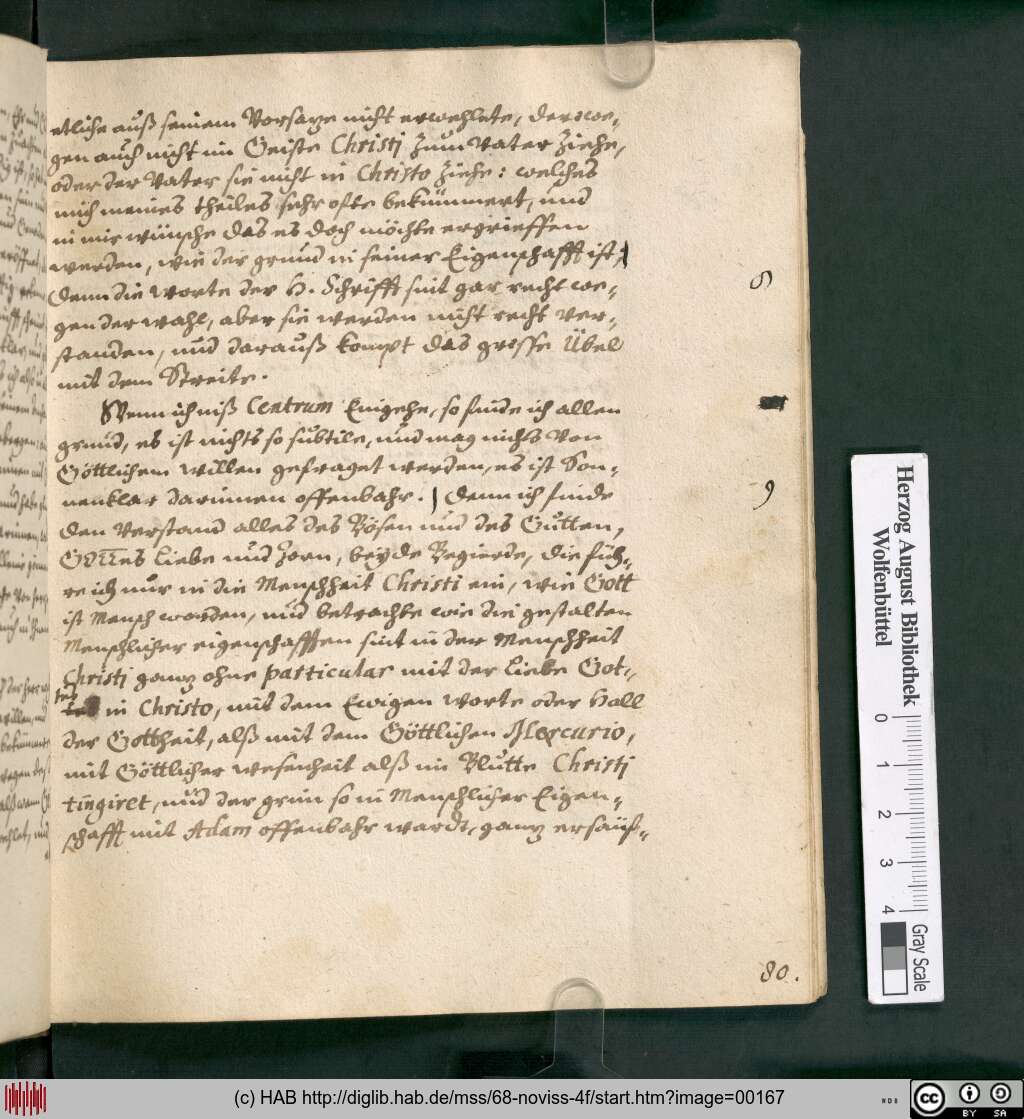 etliche auß seinem Vorsatze nicht erwehlete, derowe-
gen auch nicht im Geiste Christi zum Vater ziehe,
oder der Vater sie nicht in Christo ziehe: welches
mich meines theiles sehr ofte bekümmert, und
in mir wünsche das es doch möchte ergrieffen
werden, wie der grund in seiner Eigenschafft ist,
Denn die Worte der H. Schrifft sint gar recht we-
gen der wahl, aber sie werden nicht recht ver-
standen, und darauß kompt das grosse Übel
mit dem Streite.
6
Wenn ich inß Centrum Eingehe, so finde ich allen
grund, es ist nichts so subtile, und mag nichts von
Göttlichem willen gefraget werden, es ist Son-
nenklar darinnen offenbahr. Denn ich finde
9
den Verstand alles des Bösen und des Gutten,
Gottes Liebe und Zorn, beyde Begierde, die füh-
re ich nur in die Menschheit Christi ein, wie Gott
ist Mensch worden, und betrachte wie die gestalten
Menschlicher eigenschafften sint in der Menschheit
Christi ganz ohne particular mit der Liebe Got-
tes in Christo, mit dem Ewigen Worte oder Hall
der Gottheit, alß mit dem Göttlichen Mercurio,
mit Göttlicher wesenheit alß im Blutte Christi
tingiret, und der grim so in Menschlicher Eigen-
schafft mit Adam offenbahr wardt, ganz ersäuf-
80.
Herzog August Bibliothek
Wolfenbüttel
0 1 2 3 4
Gray Scale
(c) HAB http://diglib.hab.de/mss/68-noviss-4f/start.htm?image=00167
cc BY SA